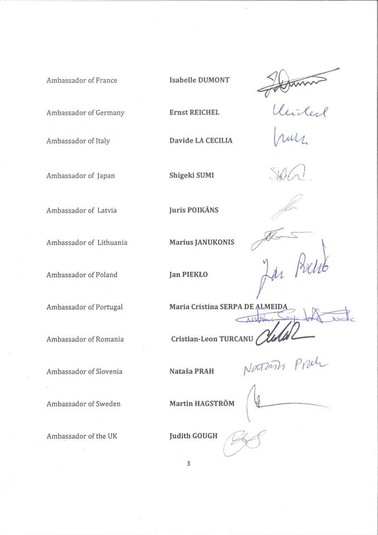 Ambassador of France Isabelle DUMONT
Ambassador of Germany Ernst REICHEL
Ambassador of Italy Davide LA CECILIA
Ambassador of Japan Shigeki SUMI
Ambassador of Latvia Juris POIKĀNS
Ambassador of Lithuania Marius JANUKONIS
Ambassador of Poland Jan PIEKŁO Jan Piekło
Ambassador of Portugal Maria Cristina SERPA DE ALMEIDA
Ambassador of Romania Cristian-Leon TURCANU
Ambassador of Slovenia Nataša PRAH Nataša Prah
Ambassador of Sweden Martin HAGSTRÖM
Ambassador of the UK Judith GOUGH
3